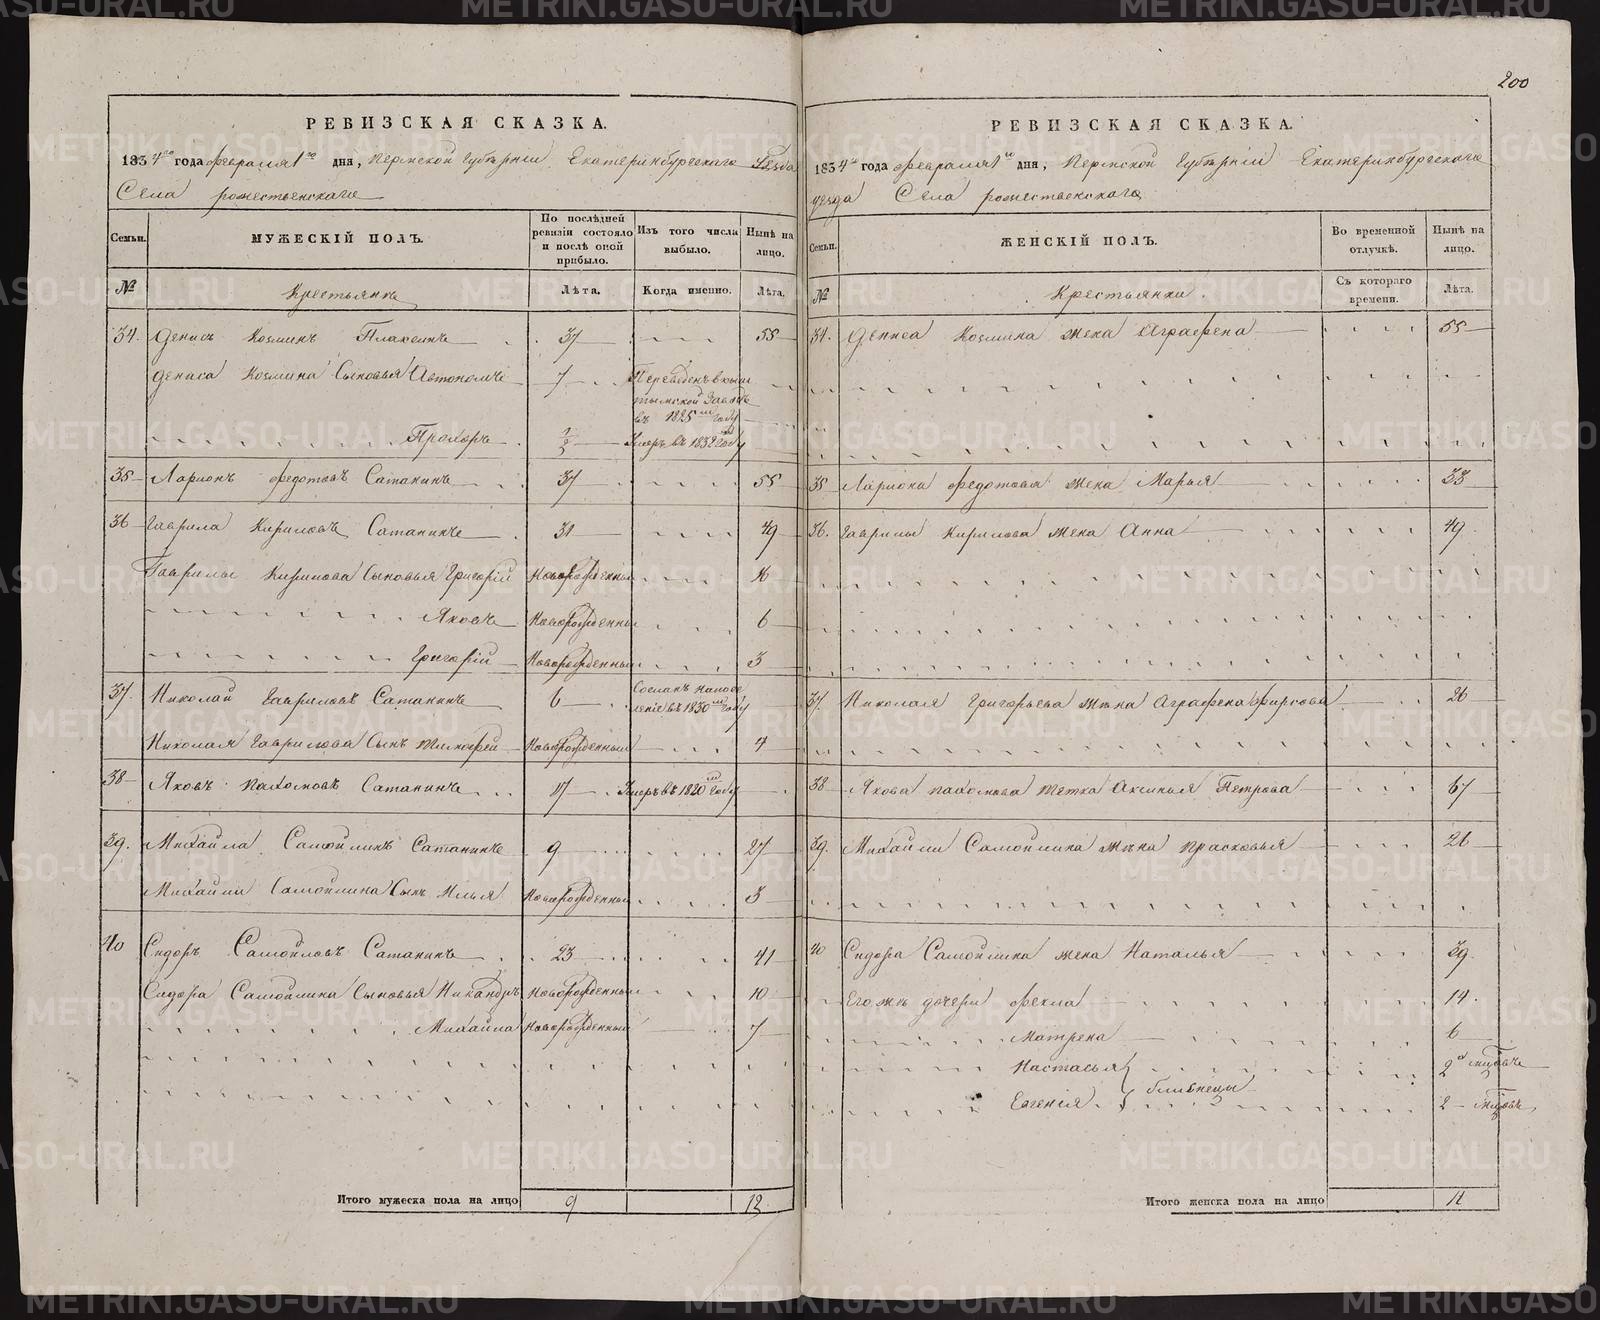 200
РЕВИЗСКАЯ СКАЗКА.
1834го года февраля 1го дня, Пермской Губѣрніи Екатеринбургскаго Уѣзда
Села рожественскаго
Семьи. МУЖЕСКІЙ ПОЛЪ. По послѣдней ревизіи состояло и послѣ оной прибыло. Изъ того числа выбыло. Нынѣ на лицо.
№ Крестьянѣ Лѣта. Когда именно. Лѣта.
34. Денисъ Козминъ Плаксинъ 37 55
Дениса Козмина Сыновья Автономъ 7 Переведенъ в кыш
тымской Заводъ
въ 1825мъ году
Прохоръ 1/2 Умеръ въ 1832 году
35 Ларионъ федотовъ Сатанинъ 37 55
36 Гаврила Кириловъ Сатанинъ 31 49
Гаврилы Кирилова Сыновья Григорій Новорожденный
Яковъ Новорожденный 6
Григорій Новорожденный 3
37. Николай Гавриловъ Сатанинъ 6 Сосланъ на посе
леніе въ 1830мъ году
Николая Гаврилова Сынъ Тимофей Новорожденный 4
38 Яковъ пахомовъ Сатанинъ 17 Умеръ въ 1820м году
39. Михайла Самойлинъ Сатанинъ 9 27
Михайлы Самойлина Сынъ Илья Новорожденный 3
40 Сидоръ Самойловъ Сатанинъ 23 41
Сидора Самойлина Сыновья Никандръ Новорожденный 10
Михайла Новорожденный 7
Итого мужеска пола на лицо 9 13
РЕВИЗСКАЯ СКАЗКА.
1834го года февраля 1го дня, Пермской Губѣрніи Екатеринбургскаго
уезда Села рожественскаго
Семьи. ЖЕНСКІЙ ПОЛЪ. Во временной отлучкѣ. Нынѣ на лицо.
№ Крестьянки. Съ котораго времени. Лѣта.
34. Дениса Козмина жена Аграфена 55
35 Лариона федотова жена Марья 38
36. Гаврилы Кирилова жена Анна 49
37. Николая Григорьева жена Аграфена Фирсова 26
38 Якова пахомова тетка Аксинья Петрова 67
39. Михайли Самойлина жена прасковья 26
40 Сидора Самойлина жена Наталья 39
Его жъ дочери фекла 14.
Матрена 6
Настасья 2хъ
Евгенія близнецы 2
Итого женска пола на лицо 11
METRIKI.GASO-URAL.RU